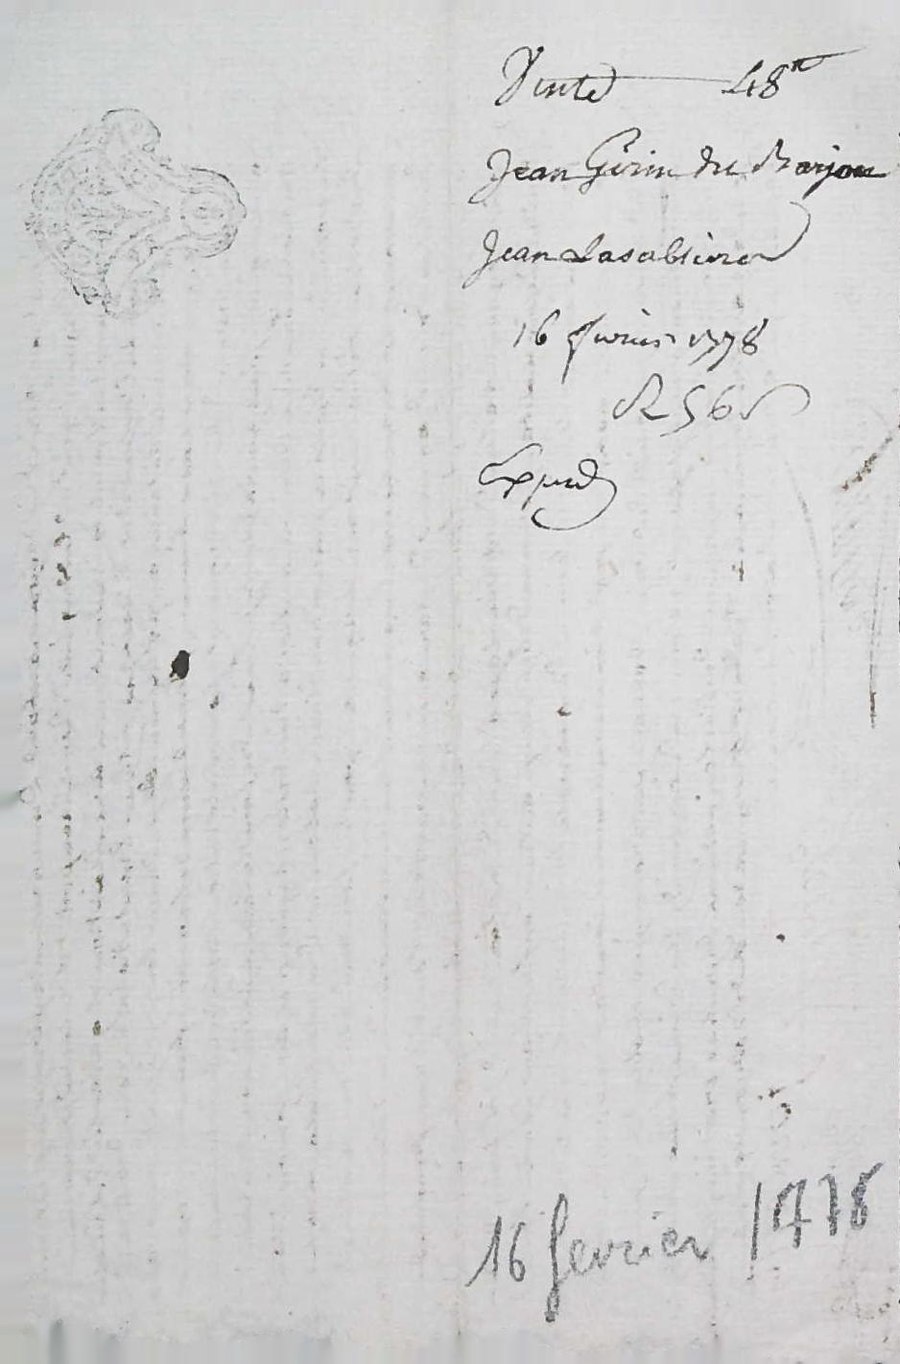 Vente 48ᵗᵗ
Jean Girin du Barjon
Jean Lasablière
16 fevrier 1778
R 56 s
Expedé
16 fevrier 1778